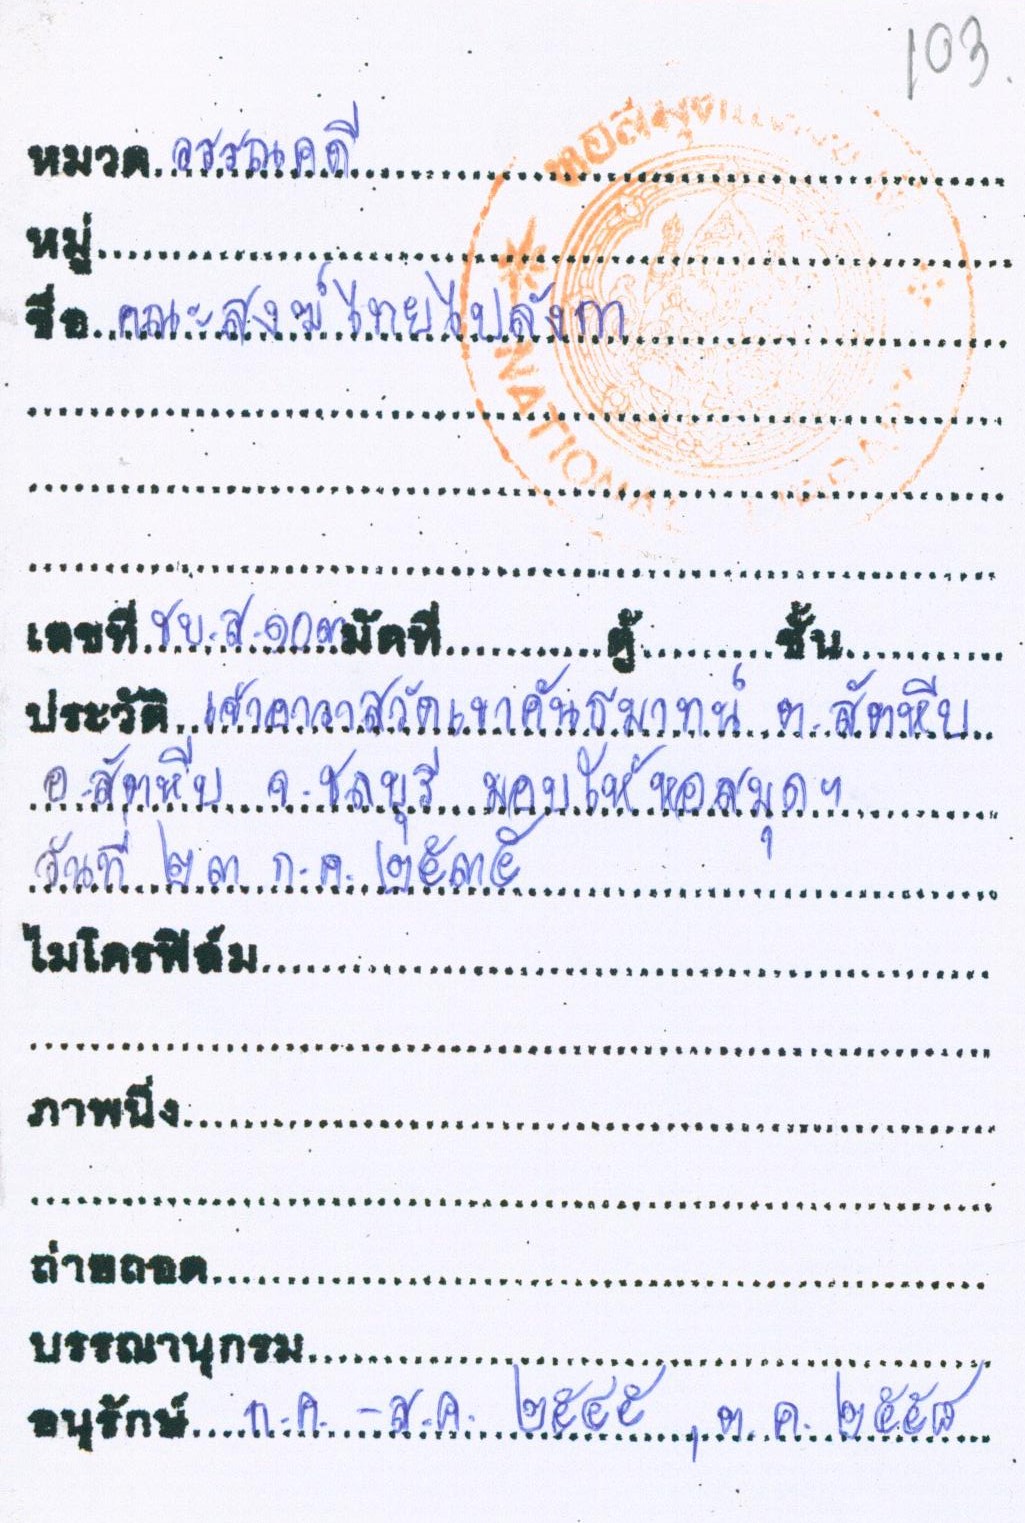 103.
หมวด วรรณคดี
หมู่
ชื่อ คณะสงฆ์ไทยไปลังกา
NATIONAL
เลขที่ ชบ.ส.๑๐๓ มัดที่ ตู้ ชั้น
ประวัติ เจ้าอาวาสวัดเขาคันธมาทน์ ต.สัตหีบ
อ.สัตหีบ จ.ชลบุรี มอบให้หอสมุดฯ
วันที่ ๒๓ ก.ค. ๒๕๓๕
ไมโครฟิล์ม
ภาพนิ่ง
ถ่ายถอด
บรรณานุกรม
อนุรักษ์ ก.ค. - ส.ค. ๒๕๔๕ , ต.ค. ๒๕๕๘